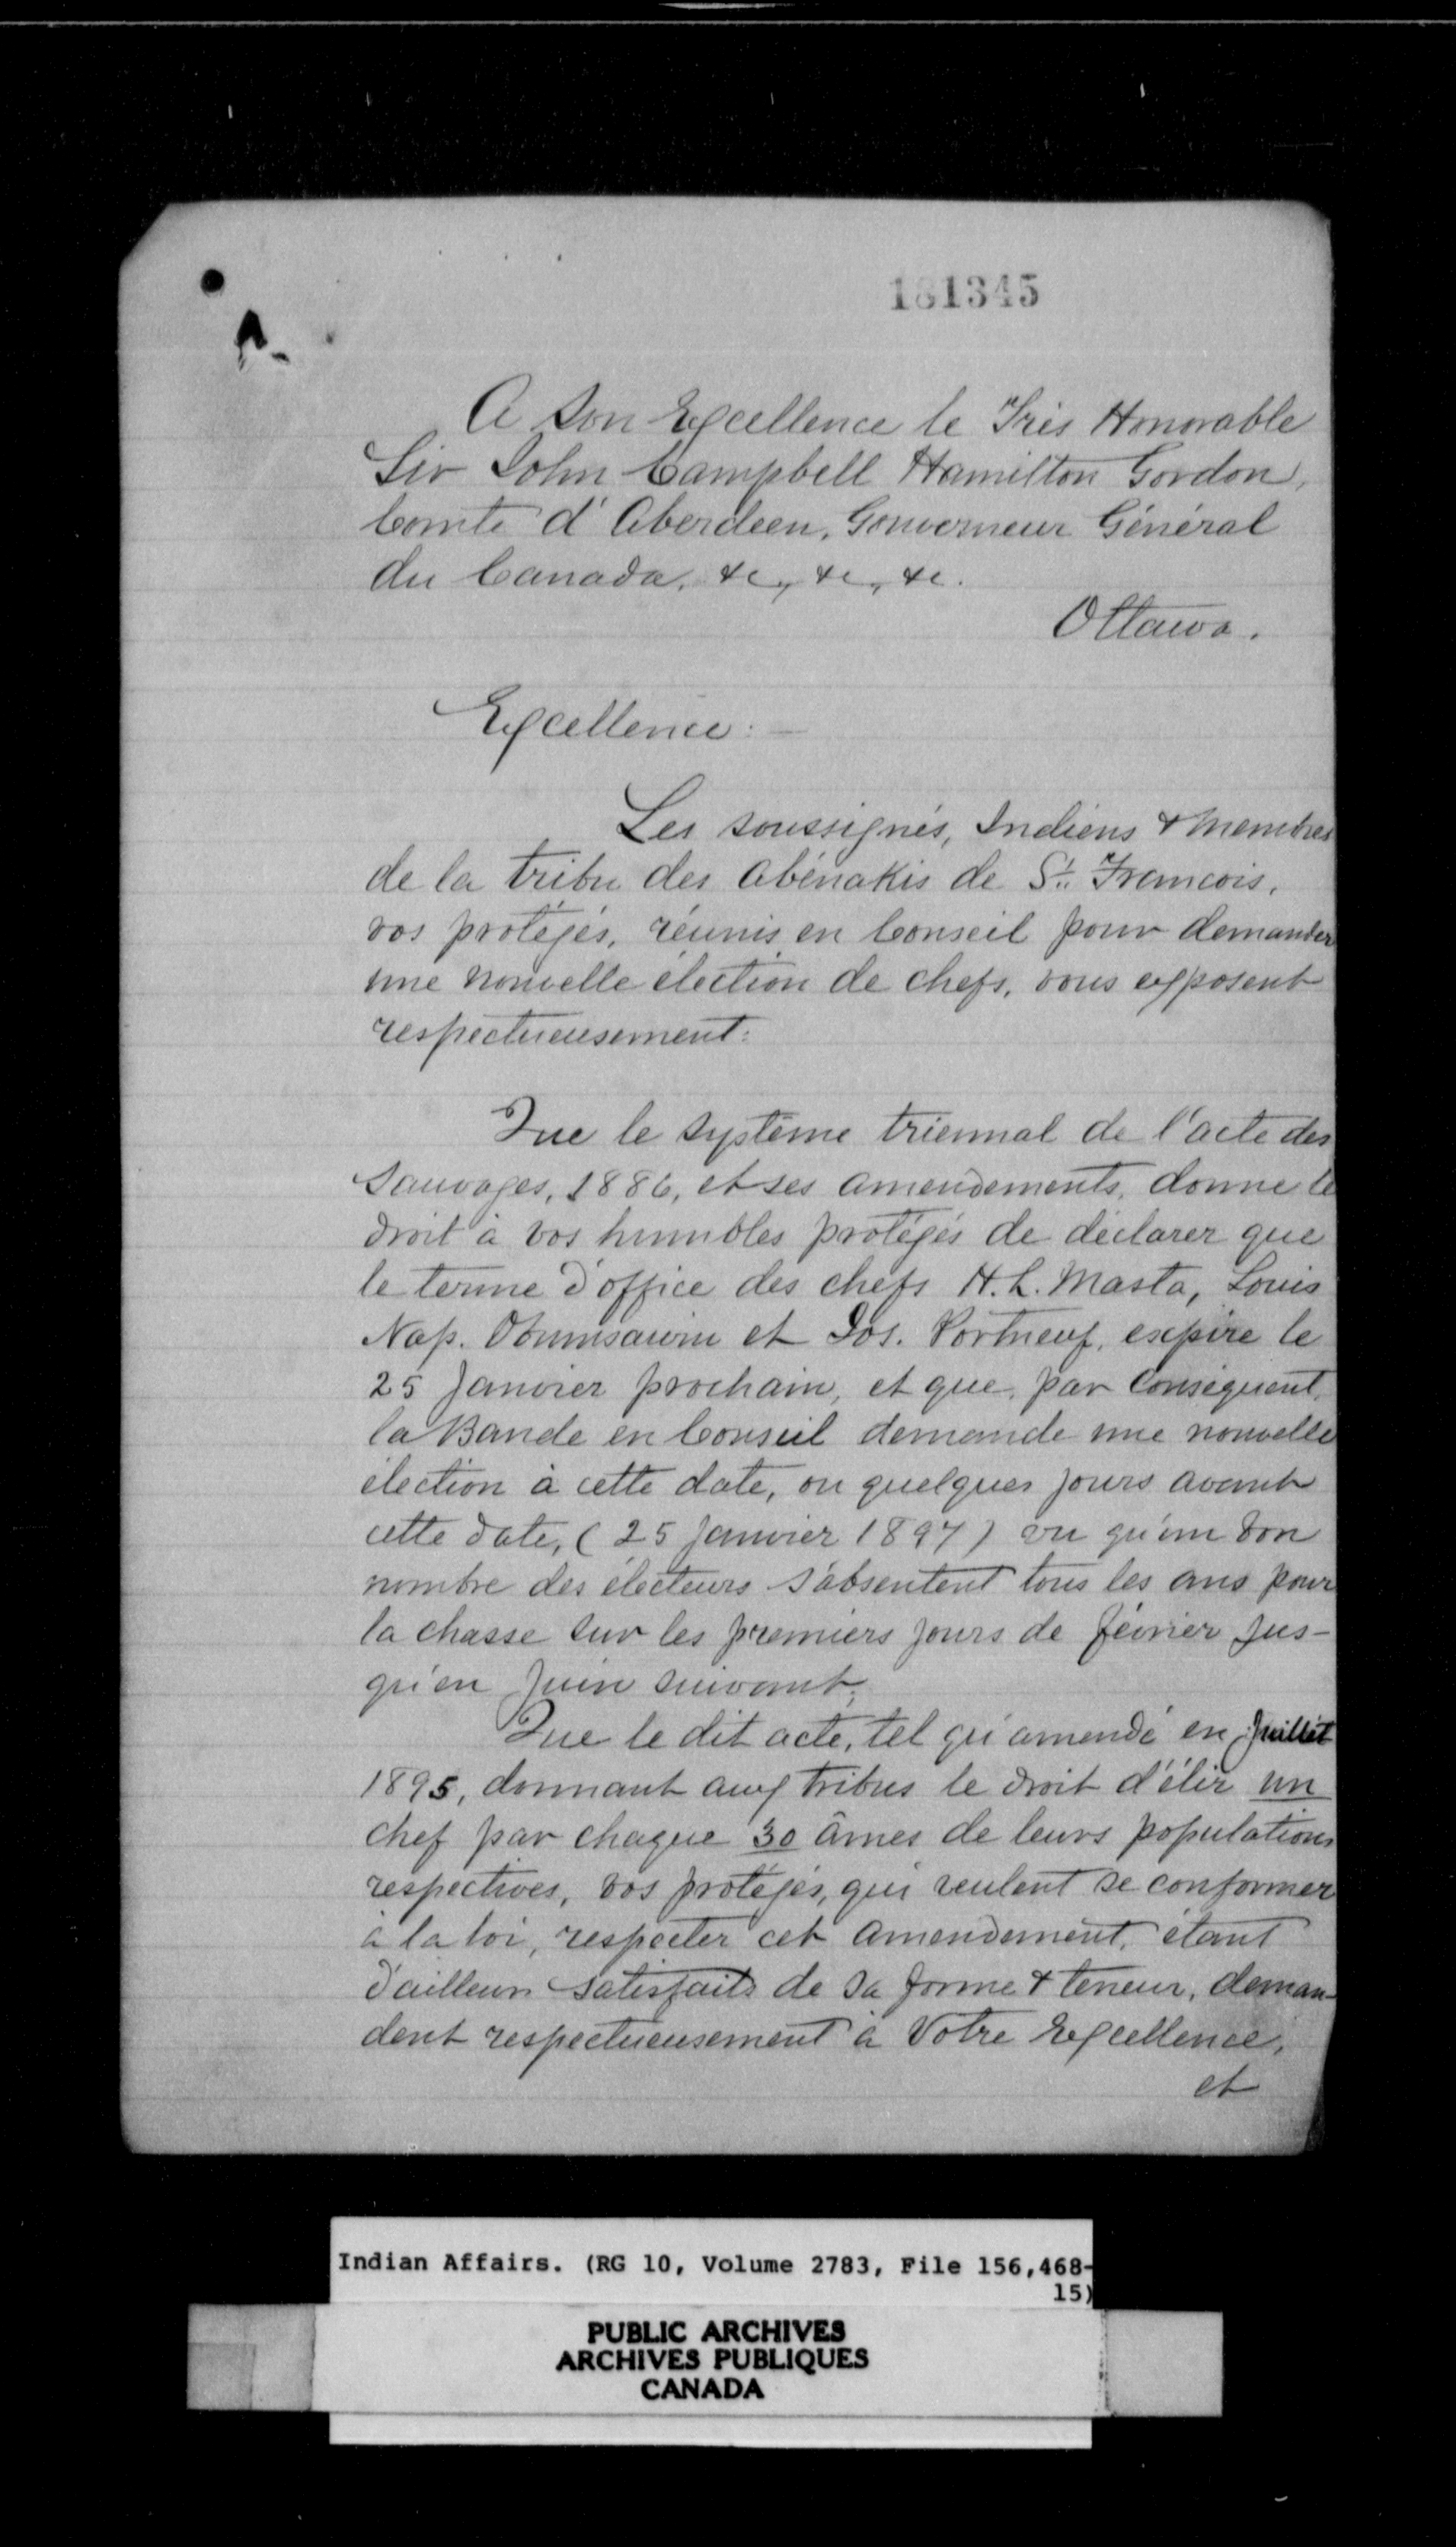 181345
A.
A Son Excellence le Très Honorable
Sir John Campbell Hamilton Gordon,
Comte d'Aberdeen, Gouverneur Général
du Canada, &c, &c, &c.
Ottawa.
Excellence:—
Les soussignés, Indiens & Membres
de la tribu des Abénakis de St. François,
vos protégés, réunis en Conseil pour demander
une nouvelle élection de chefs, vous exposent
respectueusement:
Que le système triennal de l'acte des
Sauvages, 1886, et ses amendements, donne le
droit à vos humbles protégés de déclarer que
le terme d'office des chefs H. L. Masta, Louis
Nap. Obumsawin et Jos. Portneuf, expire le
25 Janvier prochain, et que, par Conséquent,
la Bande en Conseil demande une nouvelle
élection à cette date, ou quelques jours avant
cette date, (25 Janvier 1897) vu qu'un bon
nombre des électeurs s'absentent tous les ans pour
la chasse sur les premiers jours de février jus-
qu'en Juin suivant;
Que le dit acte, tel qu'amendé en Juillet
1895, donnant aux tribus le droit d'élir un
chef par chaque 30 âmes de leurs populations
respectives, vos protégés, qui veulent se conformer
à la loi, respecter cet amendement, étant
d'ailleurs satisfaits de sa forme & teneur, deman-
dent respectueusement à Votre Excellence,
et
Indian Affairs. (RG 10, Volume 2783, File 156,468-
15)
PUBLIC ARCHIVES
ARCHIVES PUBLIQUES
CANADA